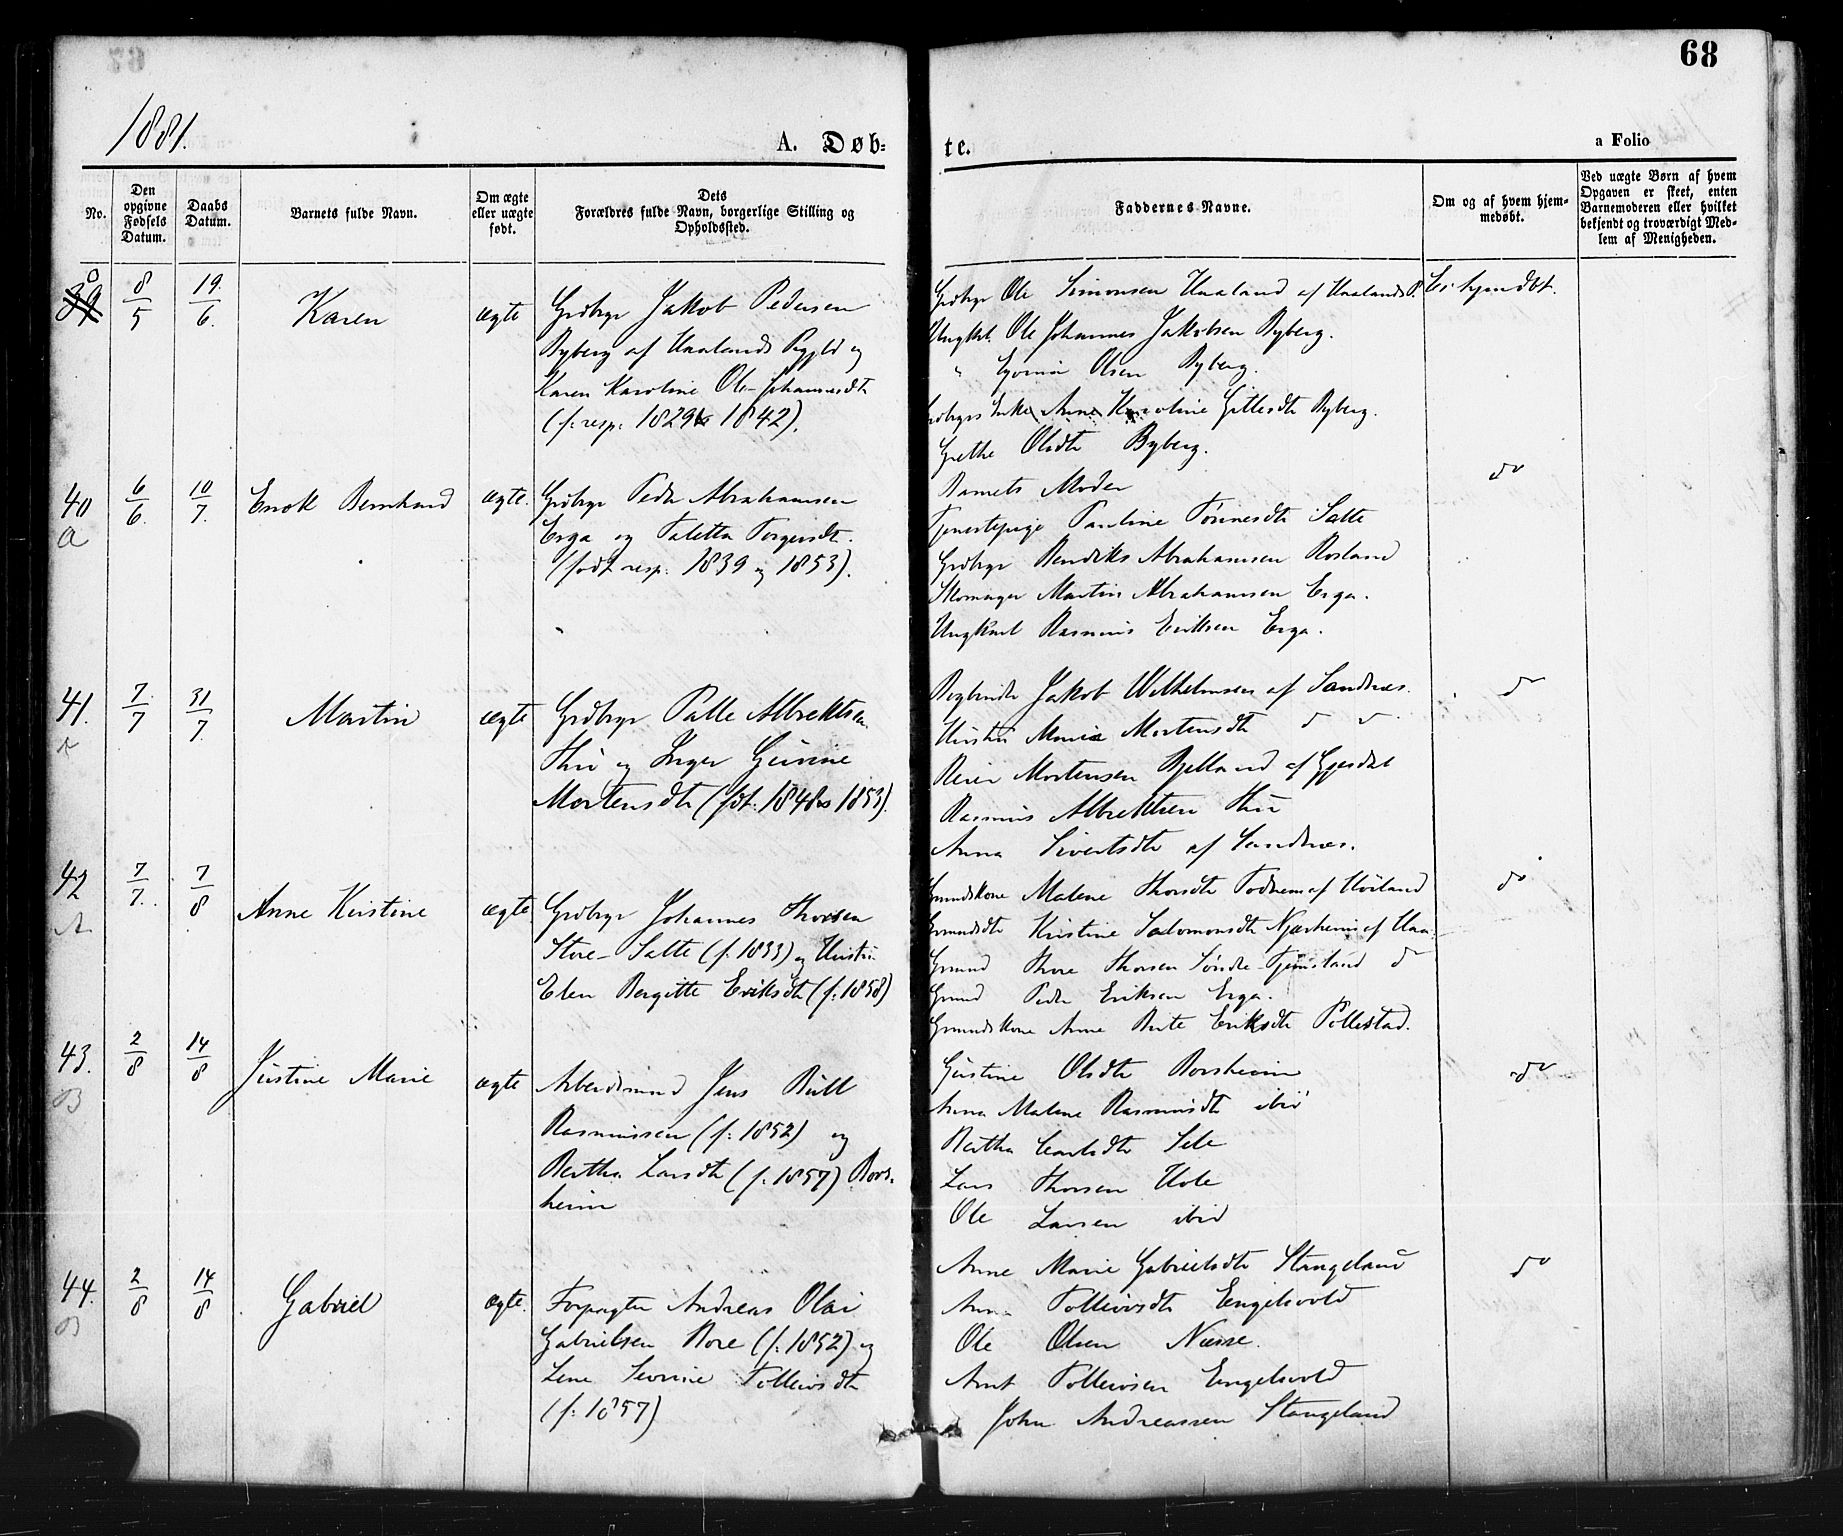 68
1881.
A. Døb-
te.
a Folio
No.
Den opgivne Fødsels Datum.
Daabs Datum.
Barnets fulde Navn.
Om ægte eller uægte født.
Dets Forældres fulde Navn, borgerlige Stilling og Opholdssted.
Faddernes Navne.
Om og af hvem hjemmedøbt.
Ved uægte Børn af hvem Opgaven er skeet, enten Barnemoderen eller hvilket bekjendt og troværdigt Medlem af Menigheden.
39
8/5
19/6.
Karen
ægte
Grdbrgr Jakob Pedersen
Byberg af Haalands Prgjld og
Karen Karoline Ole-Johannesdtr
(f. resp: 1829 & 1842).
Grdbrgr Ole Simonsen Haaland af Haalands P.
Ungkl. Ole Johannes Jakobsen Byberg.
" Olsen Byberg.
Enke Anne Karoline Gitlesdtr Byberg.
Grethe Olsdtr Byberg.
Ei hjmdbt.
40
A
6/6.
10/7.
Enok Bernhard
ægte.
Grdbrgr Peder Abrahamsen
Erga og Taletta Torgersdtr.
(født resp. 1839 og 1853).
Barnets Moder
Tjenestepige Pauline Tønnesdtr Salte
Grdbrgr Bendiks Abrahamsen Rosland
Skomager Martin Abrahamsen Erga.
Ungkarl Rasmus Eriksen Erga.
do
41.
7/7
31/7.
Martin
ægte
Grdbrgr Palle Albrektsen
Thu og Inger Gurine
Mortensdtr (fdt. 1848 & 1853).
Jakob Wilhelmsen af Sandnæs.
Hustru Marie Mortensdtr d o
Reier Mortensen Bjelland af Gjesdal
Rasmus Albrektsen Thu
Anna Sivertsdtr af Sandnæs.
do
42
A
7/7.
7/8
Anne Kristine
ægte
Grdbrgr Johannes Thorsen
Store-Salte (f. 1833) og Hustru
Elen Bergitte Eriksdtr (f. 1858)
Grmndskone Malene Thorsdtr Todnem af Høiland
Grmndsdtr Kristine Salomonsdtr Njærheim af Haa
Grmnd Thore Thorsen Søndre-Tjemsland do
Grmnd Peder Eriksen Erga.
Grmndskone Anne Berte Eriksdtr Pollestad.
do
43.
B
2/8
14/8
Justine Marie
ægte
Arbeidsmand Jens Bull
Rasmussen (f. 1852) og
Bertha Larsdtr (f. 1857) Bors-
heim
Gustine Olsdtr Borsheim
Anna Malene Rasmusdtr ibid
Bertha Sele
Lars Thorsen Hole
Ole Larsen ibid
do
44.
B
2/8
14/8
Gabriel
ægte.
Forpagter Andreas Olai
Gabrielsen Bore (f. 1852) og
Lene Severine Tollevsdtr
(f. 1857)
Anne Marie Gabrielsdtr Stangeland
Anna Tollevsdtr Engelsvold
Ole Olsen Næsse.
Arnt Tollevsen Engelsvold
John Andreassen Stangeland
do